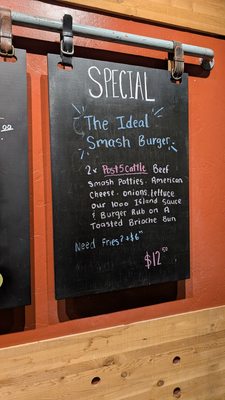 SPECIAL
The Ideal
Smash Burger
2x Post5Cattle Beef
Smash Patties, American
cheese, onions, lettuce
our 1000 Island Sauce
& Burger Rub on A
Toasted Brioche Bun
Need Fries? +$6
$12.50